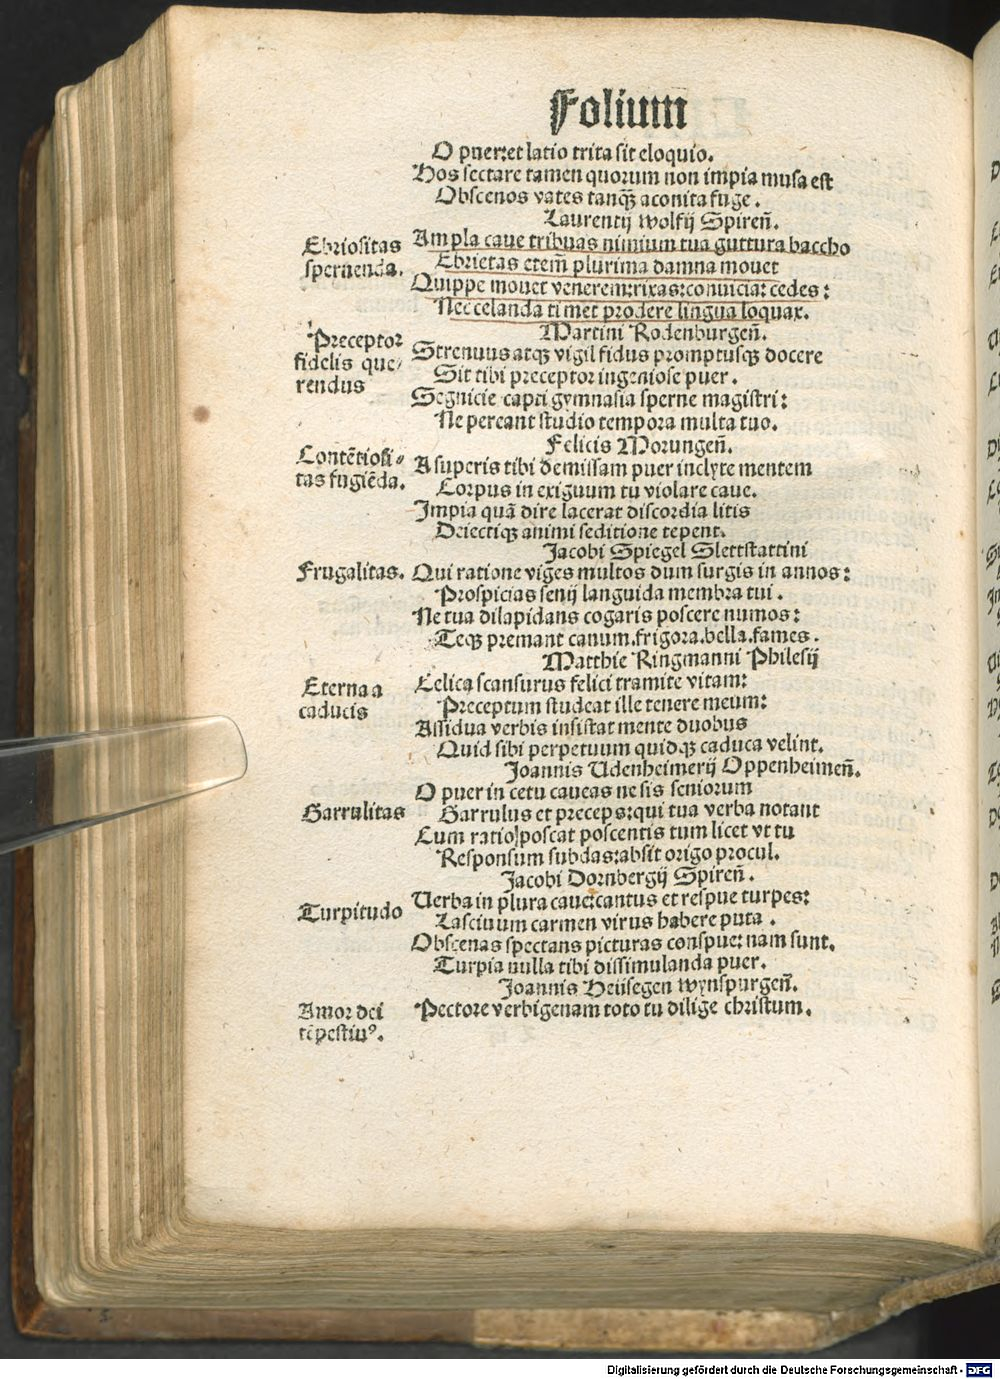 Folium
O puer: et latio trita sit eloquio.
Hos sectare tamen quorum non impia musa est
Obscenos vates tanq̃ȝ aconita fuge.
Laurentij wolfij Spireñ.
Ebriositas spernenda.
Ampla caue tribuas nimium tua guttura baccho
Ebrietas etem̃ plurima damna mouet
Quippe mouet venerem: rixas: conuicia: cedes:
Nec celanda timet prodere lingua loquax.
Martini Rodenburgeñ.
Preceptor fidelis que/rendus
Strenuus atqȝ vigil fidus promptusqȝ docere
Sit tibi preceptor ingeniose puer.
Segnicie capti gymnasia sperne magistri:
Ne pereant studio tempora multa tuo.
Felicis Morungeñ.
Contẽtiosi⸗tas fugiẽda.
A superis tibi demissam puer inclyte mentem
Corpus in exiguum tu violare caue.
Impia quã dire lacerat discordia litis
Deiectiqȝ animi seditione tepent.
Jacobi Spiegel Slettstattini
Frugalitas.
Qui ratione viges multos dum surgis in annos:
Prospicias senij languida membra tui.
Ne tua dilapidans cogaris poscere numos:
Teqȝ premant canum. frigora. bella. fames.
Matthie Ringmanni Philesij
Eterna a caducis
Celica scansurus felici tramite vitam:
Preceptum studeat ille tenere meum:
Assidua verbis insistat mente duobus
Quid sibi perpetuum quidqȝ caduca velint.
Joannis Udenheimerij Oppenheimeñ.
O puer in cetu caueas ne sis seniorum
Garrulitas
Garrulus et preceps: qui tua verba notant
Cum ratio poscat poscentis tum licet vt tu
Responsum subdas: absit origo procul.
Jacobi Dornbergij Spireñ.
Turpitudo
Uerba in plura caue: cantus et respue turpes:
Lasciuum carmen virus habere puta.
Obscenas spectans picturas conspue: nam sunt.
Turpia nulla tibi dissimulanda puer.
Joannis Heüsegen wynspurgeñ.
Amor dei tẽpestiuꝰ.
Pectore verbigenam toto tu dilige christum.
Digitalisierung gefördert durch die Deutsche Forschungsgemeinschaft - DFG